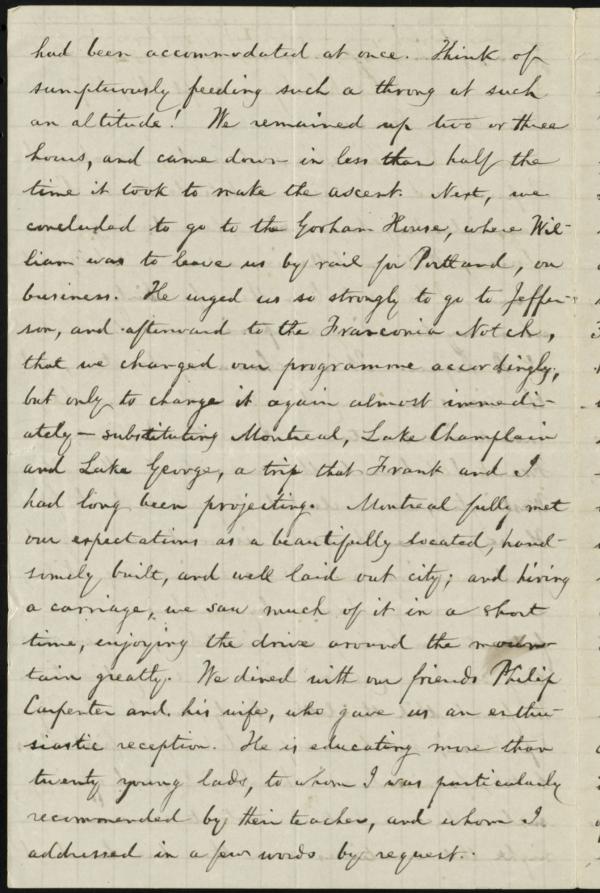 had been accommodated at once. Think of
sumptuously feeding such a throng at such
an altitude! We remained up two or three
hours, and came down in less than half the
time it took to make the ascent. Next, we
concluded to go to the Gorham House, where Wil-
liam was to leave us by rail for Portland, on
business. He urged us so strongly to go to Jeffer-
son, and afterward to the Franconia Notch,
that we changed our programme accordingly,
but only to change it again almost immedi-
ately — substituting Montreal, Lake Champlain
and Lake George, a trip that Frank and I
had long been projecting. Montreal fully met
our expectations as a beautifully located, hand-
somely built, and well laid out city; and hiring
a carriage, we saw much of it in a short
time, enjoying the drive around the moun-
tain greatly. We dined with our friends Philip
Carpenter and his wife, who gave us an enthu-
siastic reception. He is educating more than
twenty young lads, to whom I was particularly
recommended by their teacher, and whom I
addressed in a few words by request.